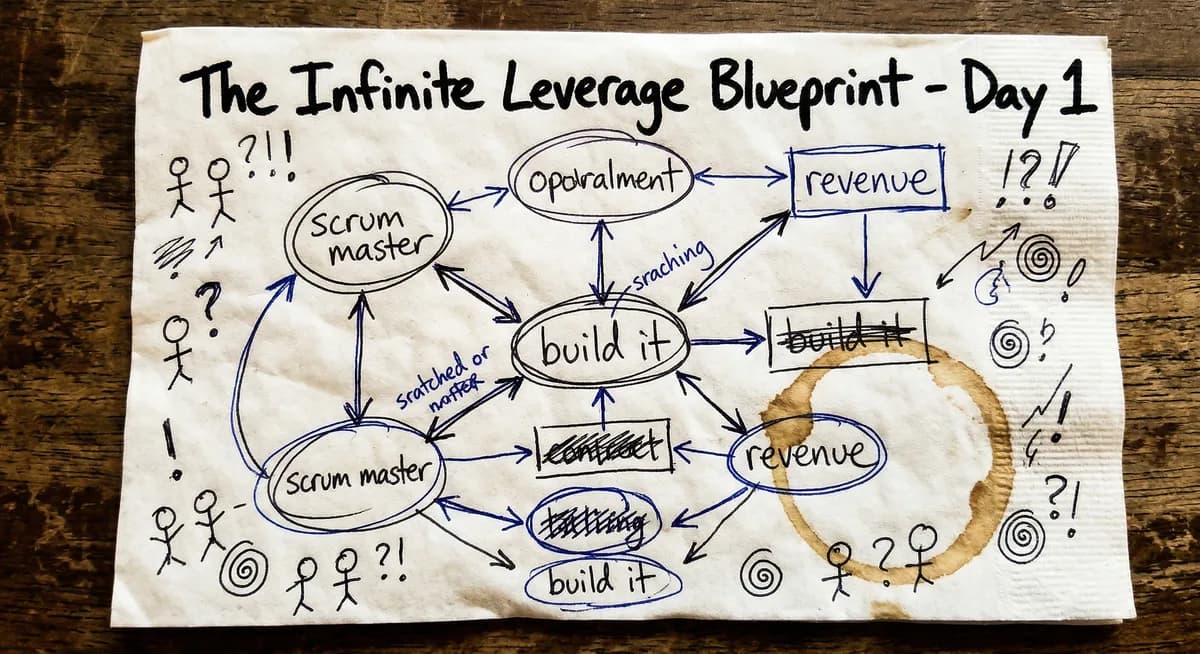 The Infinite Leverage Blueprint - Day 1
?!!
!?!
opolralment
revenue
scrum
master
sraching
?
build it
build it
!
?
sratched or
!
revenue
scrum master
?!
?!
?
build it